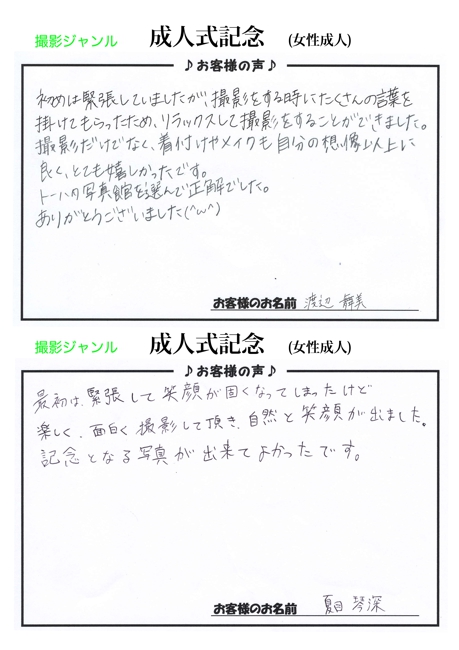 撮影ジャンル 成人式記念 (女性成人)
♪お客様の声♪
初めは緊張していましたが、撮影をする時にたくさんの言葉を
掛けてもらったため、リラックスして撮影をすることができました。
撮影だけでなく、着付けやメイクも自分の想像以上に
良く、とても嬉しかったです。
トーハク写真館を選んで正解でした。
ありがとうございました(^ω^)
お客様のお名前 渡辺 舞美
撮影ジャンル 成人式記念 (女性成人)
♪お客様の声♪
最初は、緊張して笑顔が固くなってしまったけど
楽しく、面白く撮影して頂き、自然と笑顔が出ました。
記念となる写真が出来てよかったです。
お客様のお名前 夏目 琴深